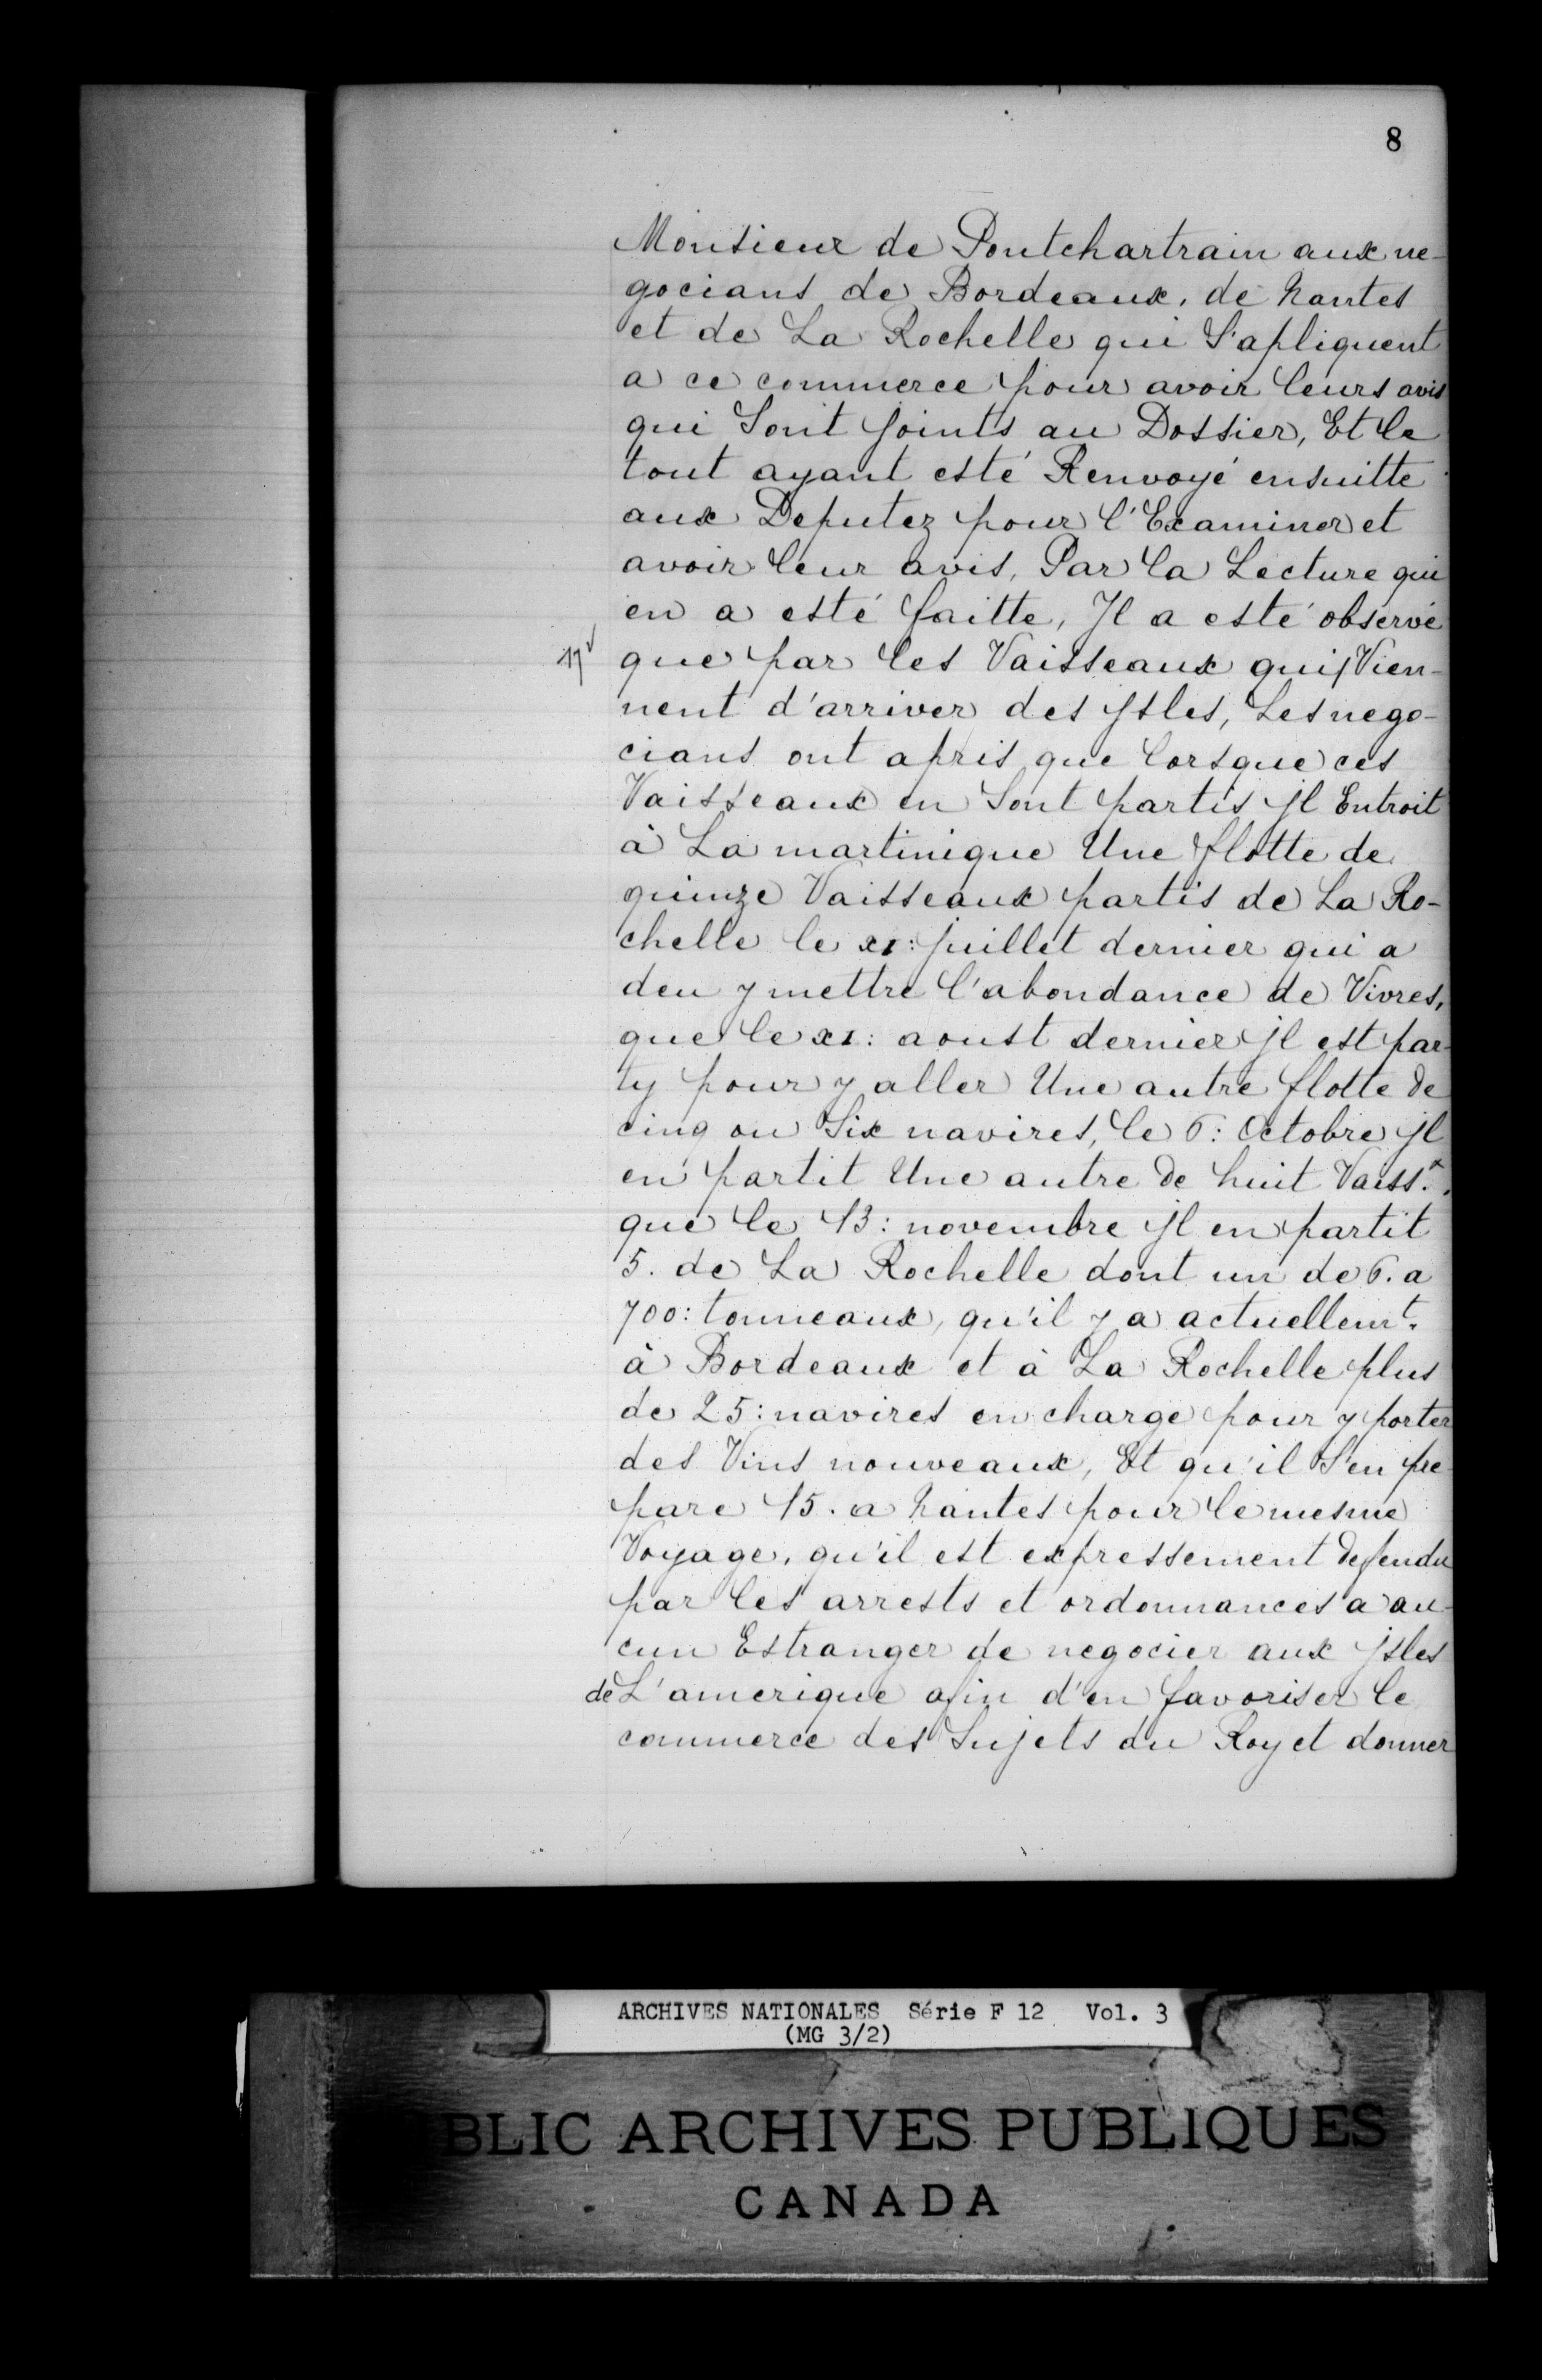 8
Monsieur de Pontchartrain aux ne-
gocians de Bordeaux, de Nantes
et de La Rochelle qui S'apliquent
a ce commerce pour avoir leurs avis
qui Sont joints au Dossier, Et le
tout ayant esté Renvoyé ensuitte
aux Deputez pour l'Examiner et
avoir leur avis, Par la Lecture qui
en a esté faitte, Il a esté observé
que par les Vaisseaux qui/Vien-
nent d'arriver des Isles, Les nego-
cians ont apris que lorsque ces
Vaisseaux en Sont partis jl Entroit
à La martinique Une flotte de
quinze Vaisseaux partis de La Ro-
chelle le xi: juillet dernier qui a
deu y mettre l'abondance de Vivres,
que le xi: aoust dernier jl est par-
ty pour y aller Une autre flotte de
cinq ou Six navires, le 6: Octobre jl
en partit Une autre de huit Vaiss.x,
que le 13: novembre jl en partit
5. de La Rochelle dont un de 6. a
700: tonneaux, qu'il y a actuellemt.
à Bordeaux et à La Rochelle plus
de 25: navires en charge pour y porter
des Vins nouveaux, Et qu'il S'en pre-
pare 15. a Nantes pour le mesme
Voyage, qu'il est expressement defendu
par les arrests et ordonnances a au-
cun Estranger de negocier aux jsles
de L'amerique afin d'en favoriser le
commerce des Sujets du Roy et donner
ARCHIVES NATIONALES Série F 12 Vol. 3
(MG 3/2)
BLIC ARCHIVES PUBLIQUES
CANADA